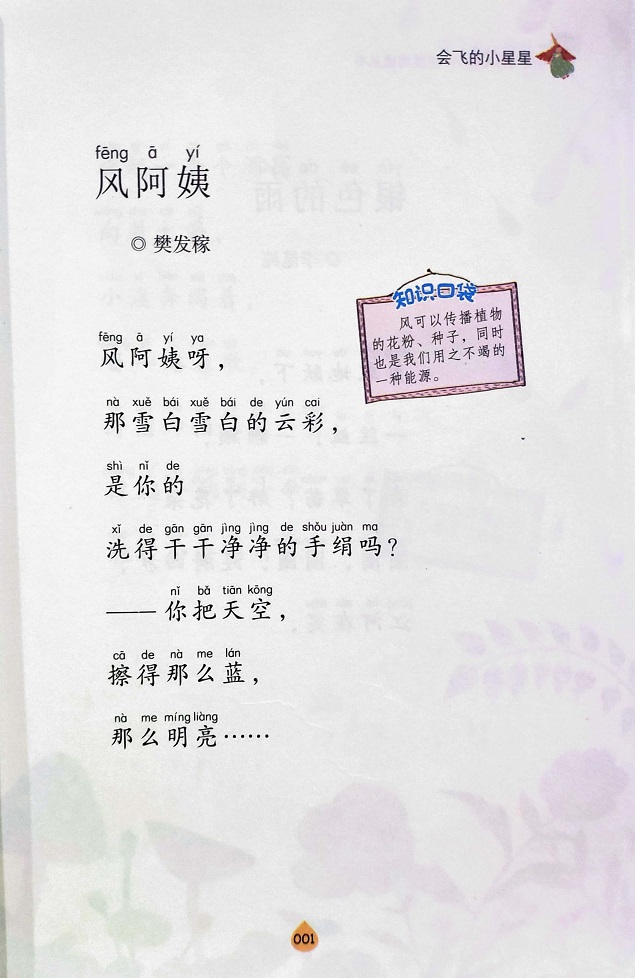 会飞的小星星
fēng ā yí
风阿姨
◎ 樊发稼
知识口袋
风可以传播植物
的花粉、种子，同时
也是我们用之不竭的
一种能源。
fēng ā yí ya
风阿姨呀，
nà xuě bái xuě bái de yún cai
那雪白雪白的云彩，
shì nǐ de
是你的
xǐ de gān gān jìng jìng de shǒu juàn ma
洗得干干净净的手绢吗？
nǐ bǎ tiān kōng
—— 你把天空，
cā de nà me lán
擦得那么蓝，
nà me míng liàng
那么明亮……
001